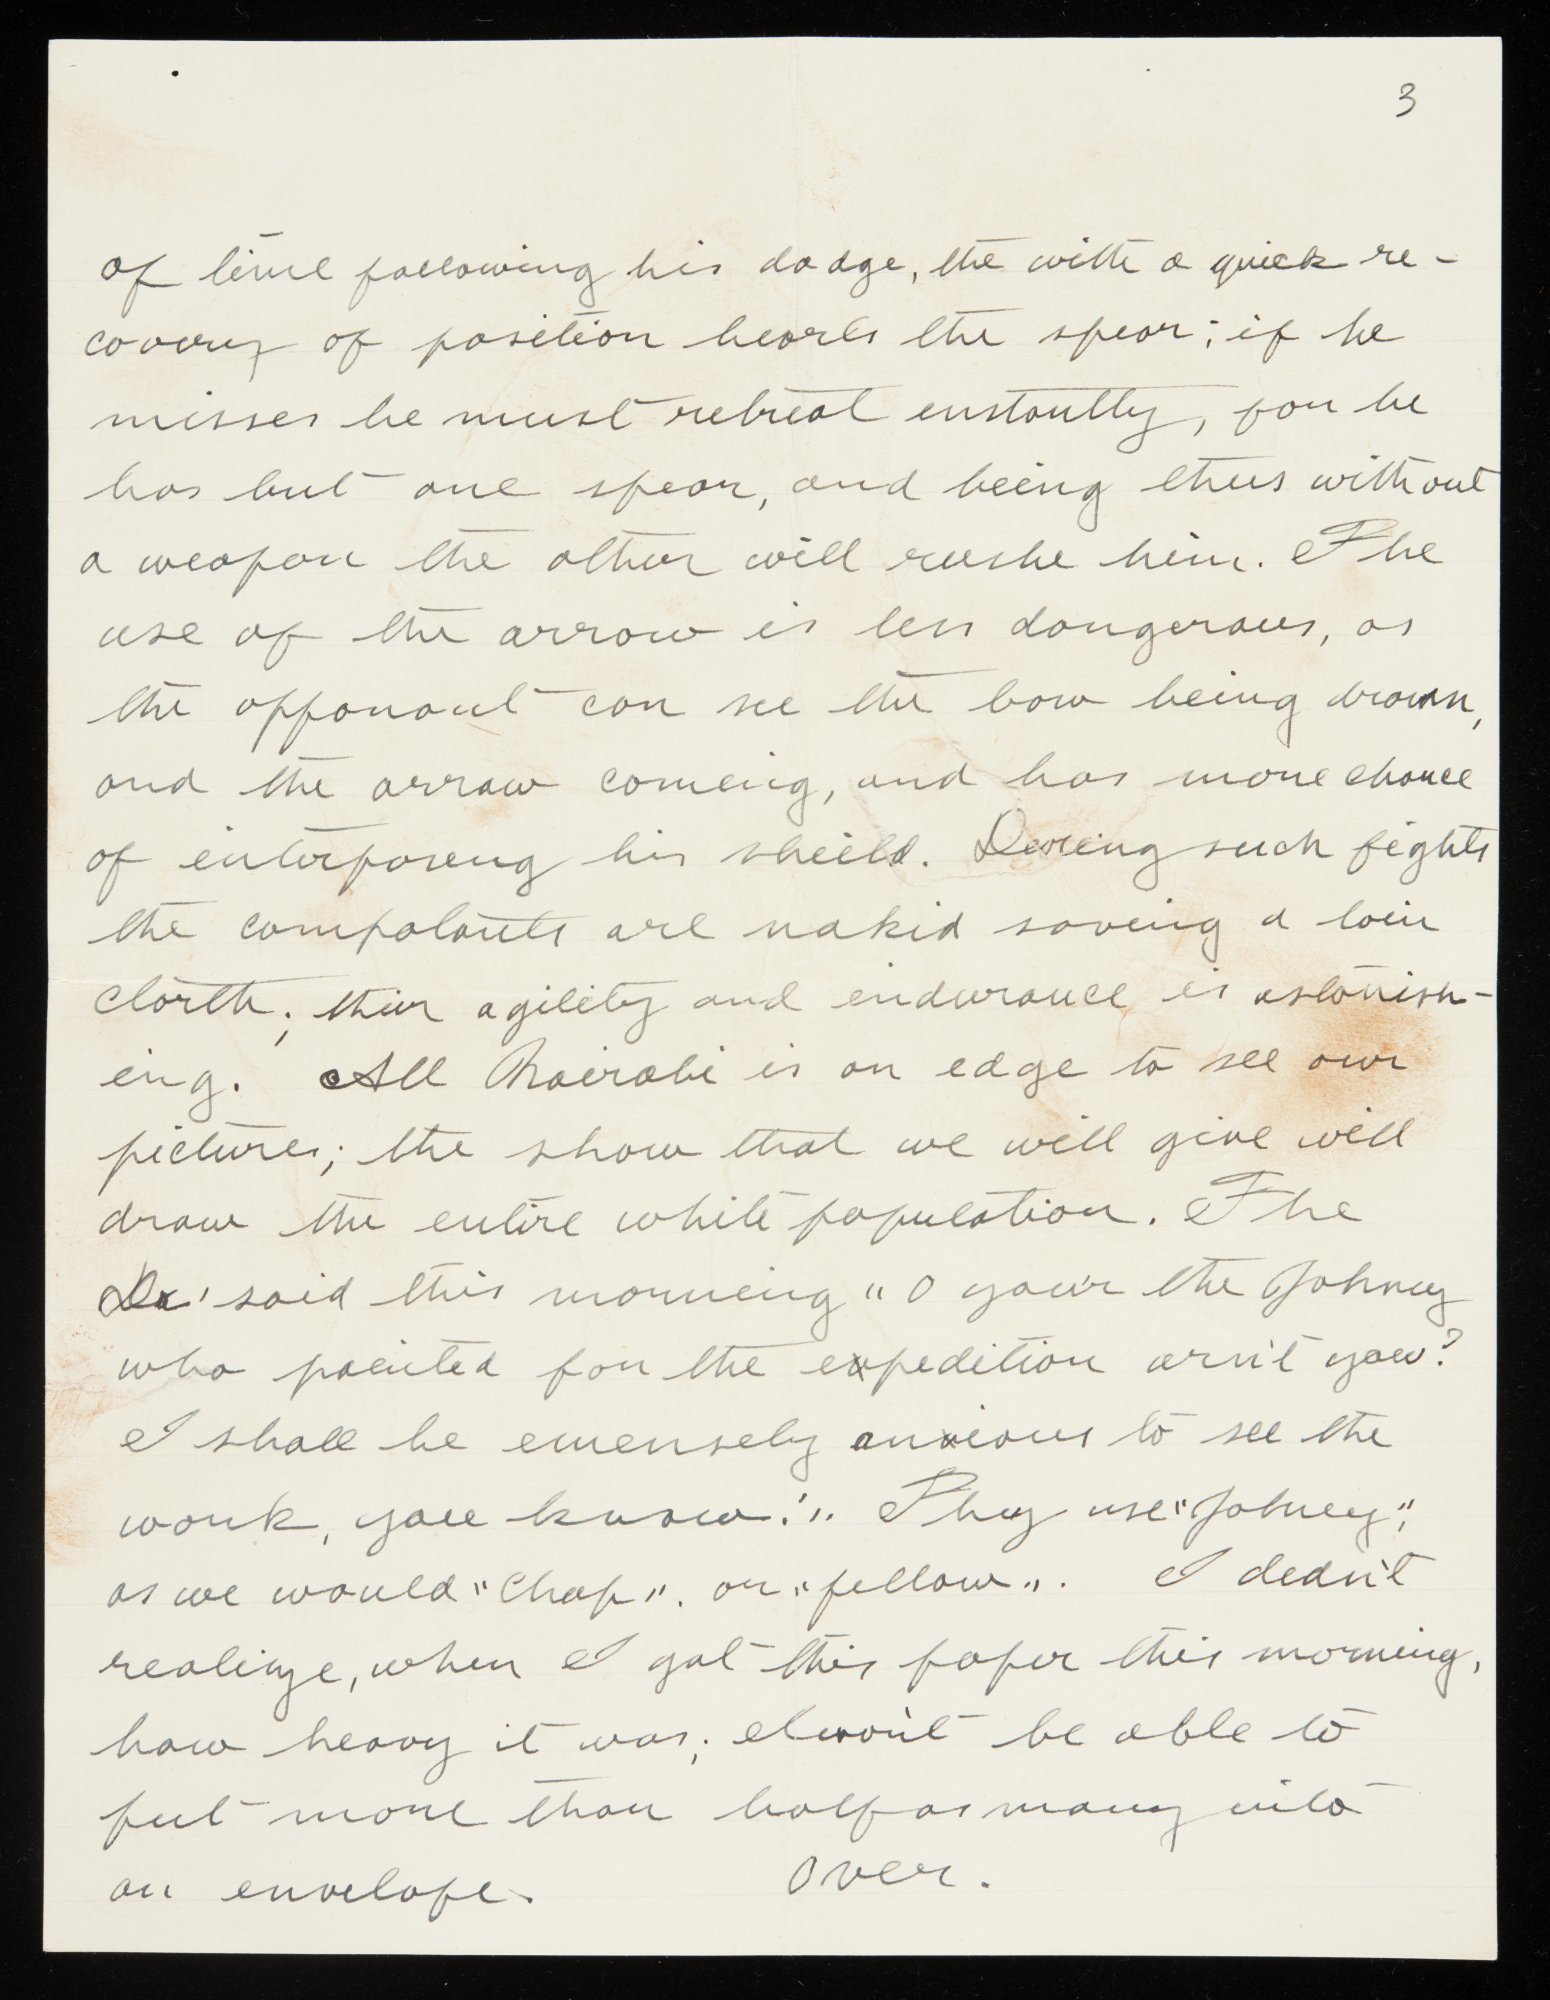 3
of time following his dodge, the with a quick re-
covery of position hearls the spear; if he
misses he must retreat enstantly, for he
has but one spear, and being thus without
a weapon the other will rushe him. The
use of the arrow is less dangerous, as
the opponant can see the bow being drawn,
and the arrow comeing, and has more chance
of interposeng his sheild. Dureing such fights
the compatants are nakid saveing a loin
clorth; thier agility and endurance is astonish-
ing. All Nairobi is on edge to see our
pictures; the show that we will give will
draw the entire white population. The
Dr. said this morneing "O your the Johney
who painted for the expedition arn't you?
I shall be emensely anxious to see the
work, you know!". They use "Johney",
as we would "Chap". or "fellow". I dedn't
realize, when I got this paper this morneing,
how heavy it was; I won't be able to
put more than half as many into
an envelope. Over.